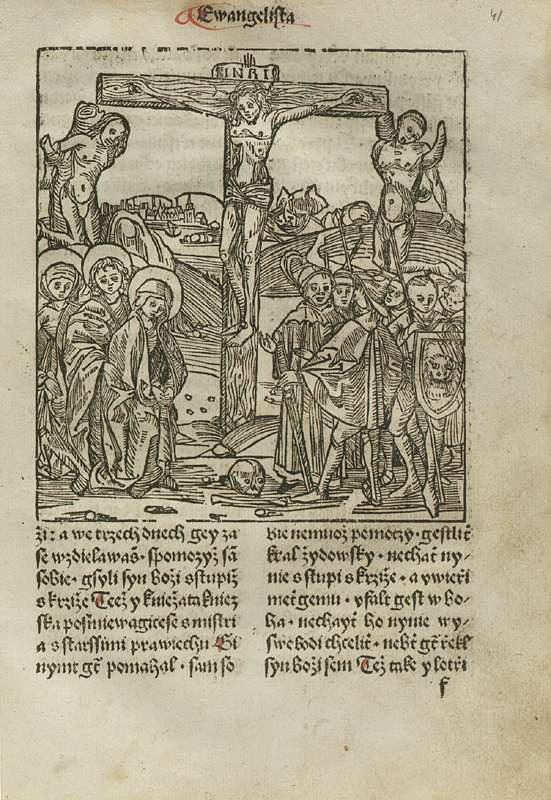 Ewangelista
41
INRI
ži: a we trzech dnech gey za
se wzdielawaš · spomozyž sā
sobie · gsyli syn boži sstupiž
s krziže Teež y kniežata kniez
ska posmiewagicese s mistri
a s starssimi prawiechu Gi
nymt gt pomahal · sam so
bie nemuož pomoczy · gestliť
kral żydowsky · nechať ny-
nie sstupi s krziże · a vwieři
meť gemu · vfalt gest w bo-
ha · nechayt ho nynie wy-
swobodi chceliť · nebť gt řekl
syn boži sem Też take y letři
f